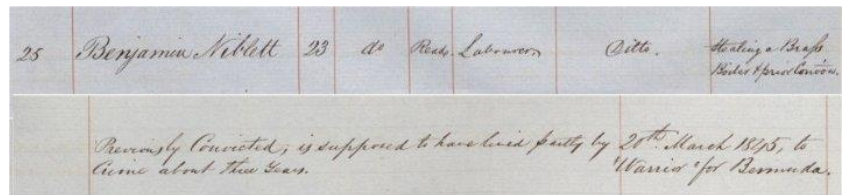 25 Benjamin Niblett 23 do Reads Labourer Ditto. Stealing a Brass
Boiler & prior Convon.
Previously Convicted; is supposed to have lived partly by 20th. March 1845, to
Crime about three Years. "Warrior" for Bermuda.